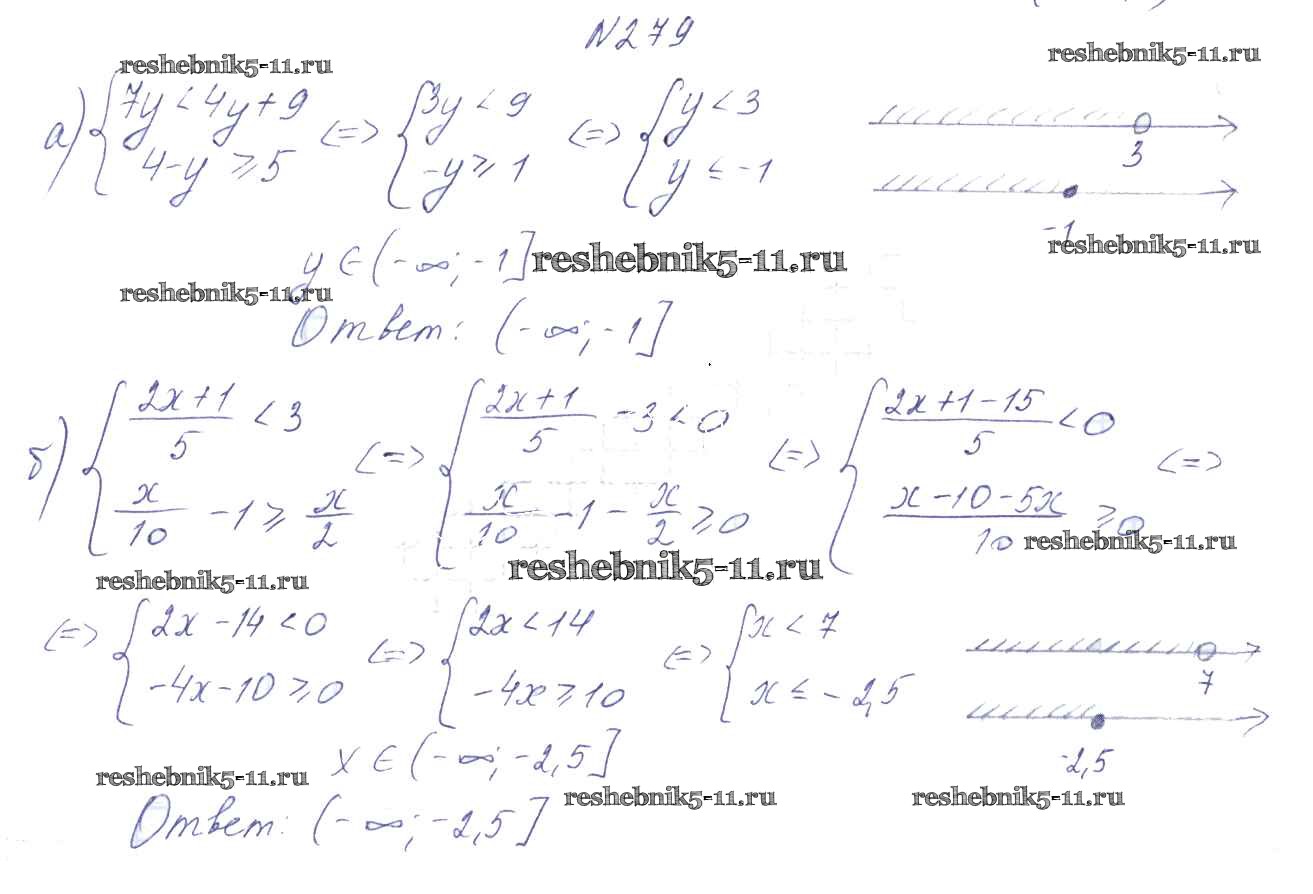 N279
reshebnik5-11.ru reshebnik5-11.ru
а) { 7y < 4y + 9 ; 4 - y ⩾ 5 <=> { 3y < 9 ; -y ⩾ 1 <=> { y < 3 ; y ≤ -1
3
-1
y ∈ (-∞; -1] reshebnik5-11.ru reshebnik5-11.ru
reshebnik5-11.ru
Ответ: (-∞; -1]
б) { (2x+1)/5 < 3 ; x/10 - 1 ⩾ x/2 <=> { (2x+1)/5 - 3 < 0 ; x/10 - 1 - x/2 ⩾ 0 <=> { (2x+1-15)/5 < 0 ; (x-10-5x)/10 ⩾ 0 <=>
reshebnik5-11.ru reshebnik5-11.ru reshebnik5-11.ru
<=> { 2x - 14 < 0 ; -4x - 10 ⩾ 0 <=> { 2x < 14 ; -4x ⩾ 10 <=> { x < 7 ; x ≤ -2,5
7
-2,5
x ∈ (-∞; -2,5]
reshebnik5-11.ru reshebnik5-11.ru reshebnik5-11.ru
Ответ: (-∞; -2,5]